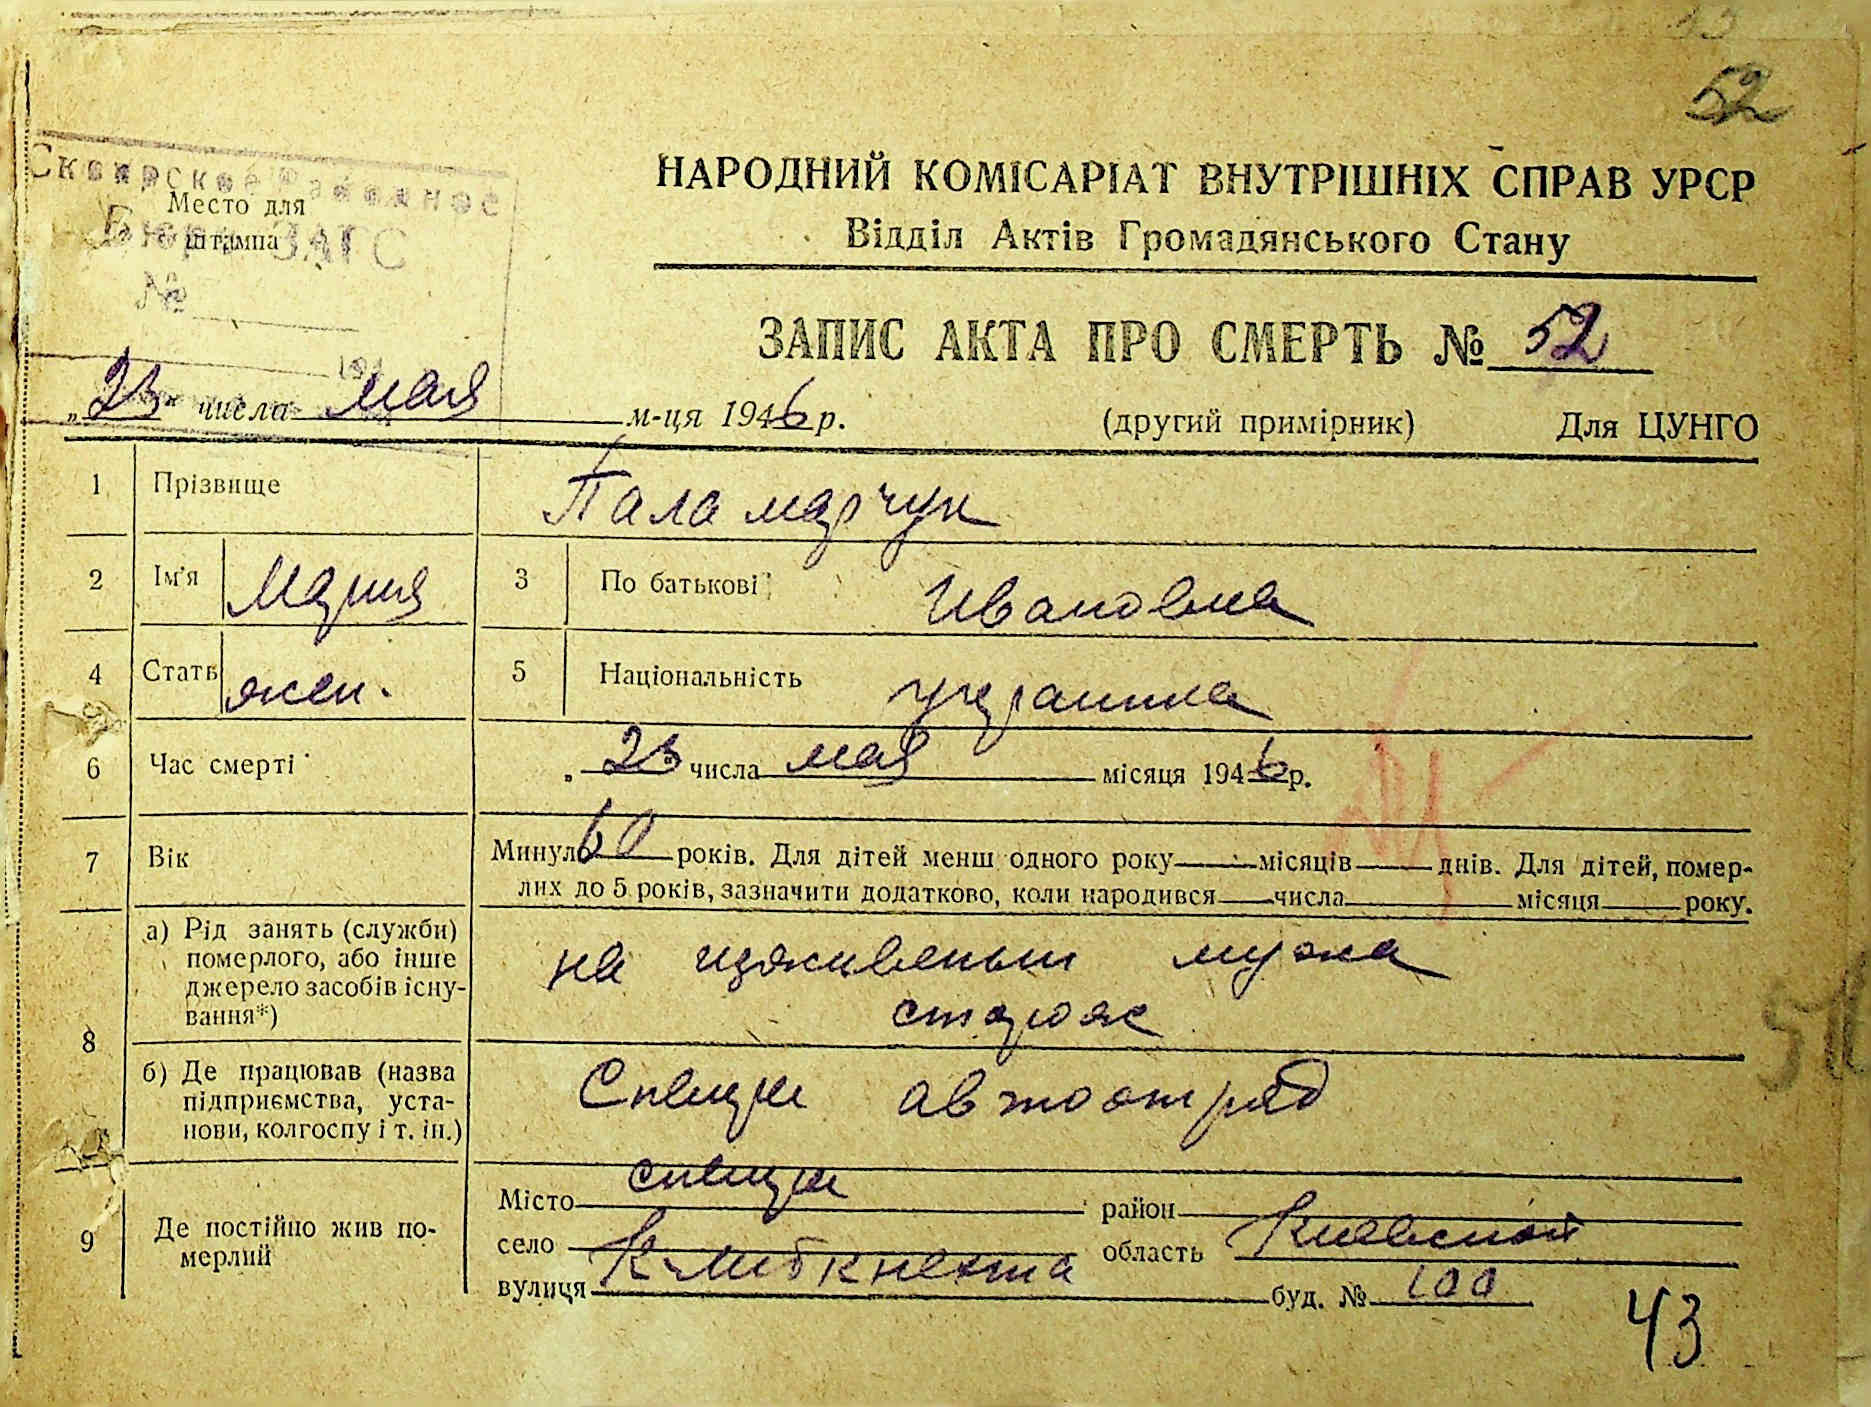 52
Сквирское Районное
Место для
штампа
Бюро ЗАГС
№
НАРОДНИЙ КОМІСАРІАТ ВНУТРІШНІХ СПРАВ УРСР
Відділ Актів Громадянського Стану
ЗАПИС АКТА ПРО СМЕРТЬ № 52
„23“ числа мая м-ця 1946 р.
(другий примірник) Для ЦУНГО
1 Прізвище Паламарчук
2 Ім'я Мария 3 По батькові Ивановна
4 Стать жен. 5 Національність украинка
6 Час смерті „ 23 числа мая місяця 1946 р.
7 Вік Минуло 60 років. Для дітей менш одного року місяців днів. Для дітей, помер-
лих до 5 років, зазначити додатково, коли народився числа місяця року.
8 а) Рід занять (служби)
померлого, або інше
джерело засобів існу-
вання*)
на иждивеньи мужа
сторож
б) Де працював (назва
підприємства, уста-
нови, колгоспу і т. ін.)
автоотряд
9 Де постійно жив по-
мерлий
Місто район
село область Киевской
вулиця К-Либкнехта буд. № 100
43